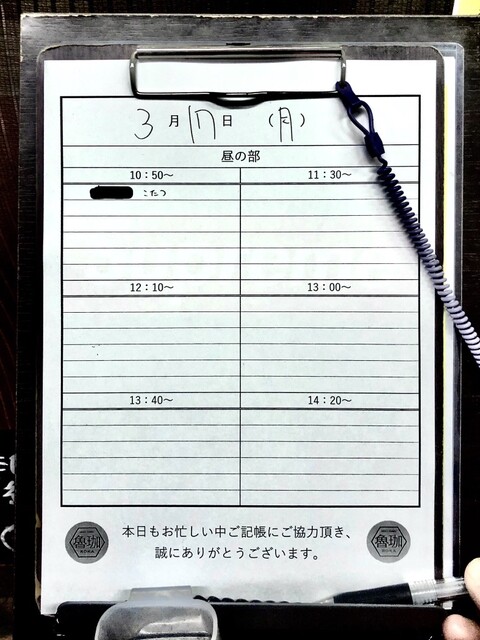 3月17日 (月)
昼の部
10：50～ 11：30～
こたつ
12：10～ 13：00～
13：40～ 14：20～
本日もお忙しい中ご記帳にご協力頂き、
誠にありがとうございます。
魯珈 魯珈
ROKA ROKA